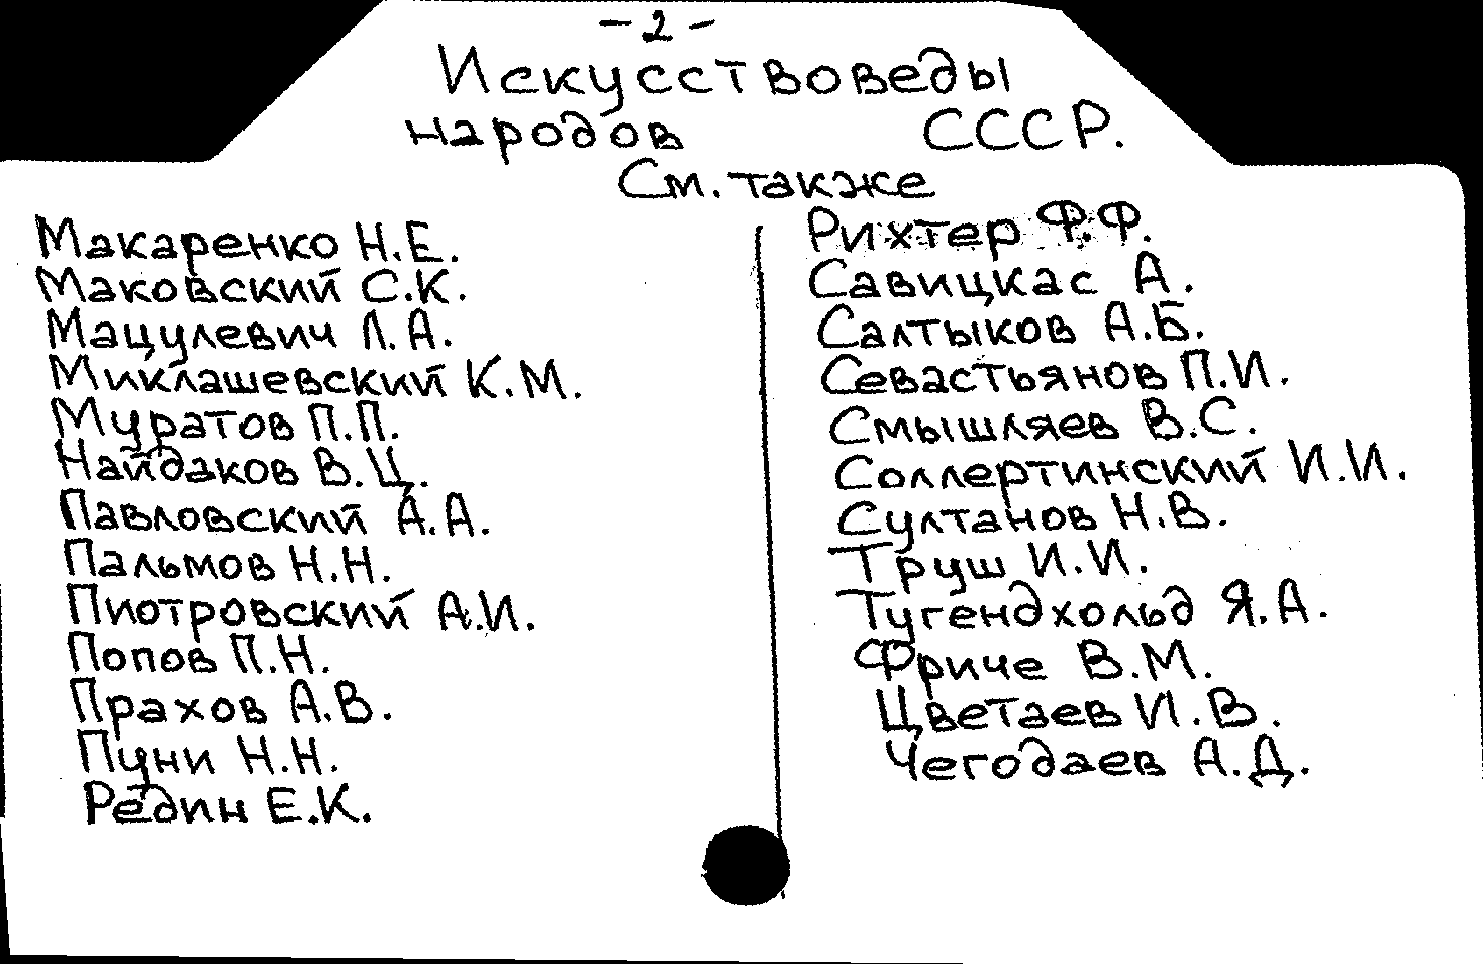 - 2 -
Искусствоведы
народов СССР.
См. также
Макаренко Н.Е.
Маковский С.К.
Мацулевич Л.А.
Миклашевский К.М.
Муратов П.П.
Найдаков В.Ц.
Павловский А.А.
Пальмов Н.Н.
Пиотровский А.И.
Попов П.Н.
Прахов А.В.
Пуни Н.Н.
Редин Е.К.
Рихтер Ф.Ф.
Савицкас А.
Салтыков А.Б.
Севастьянов П.И.
Смышляев В.С.
Соллертинский И.И.
Султанов Н.В.
Труш И.И.
Тугендхольд Я.А.
Фриче В.М.
Цветаев И.В.
Чегодаев А.Д.